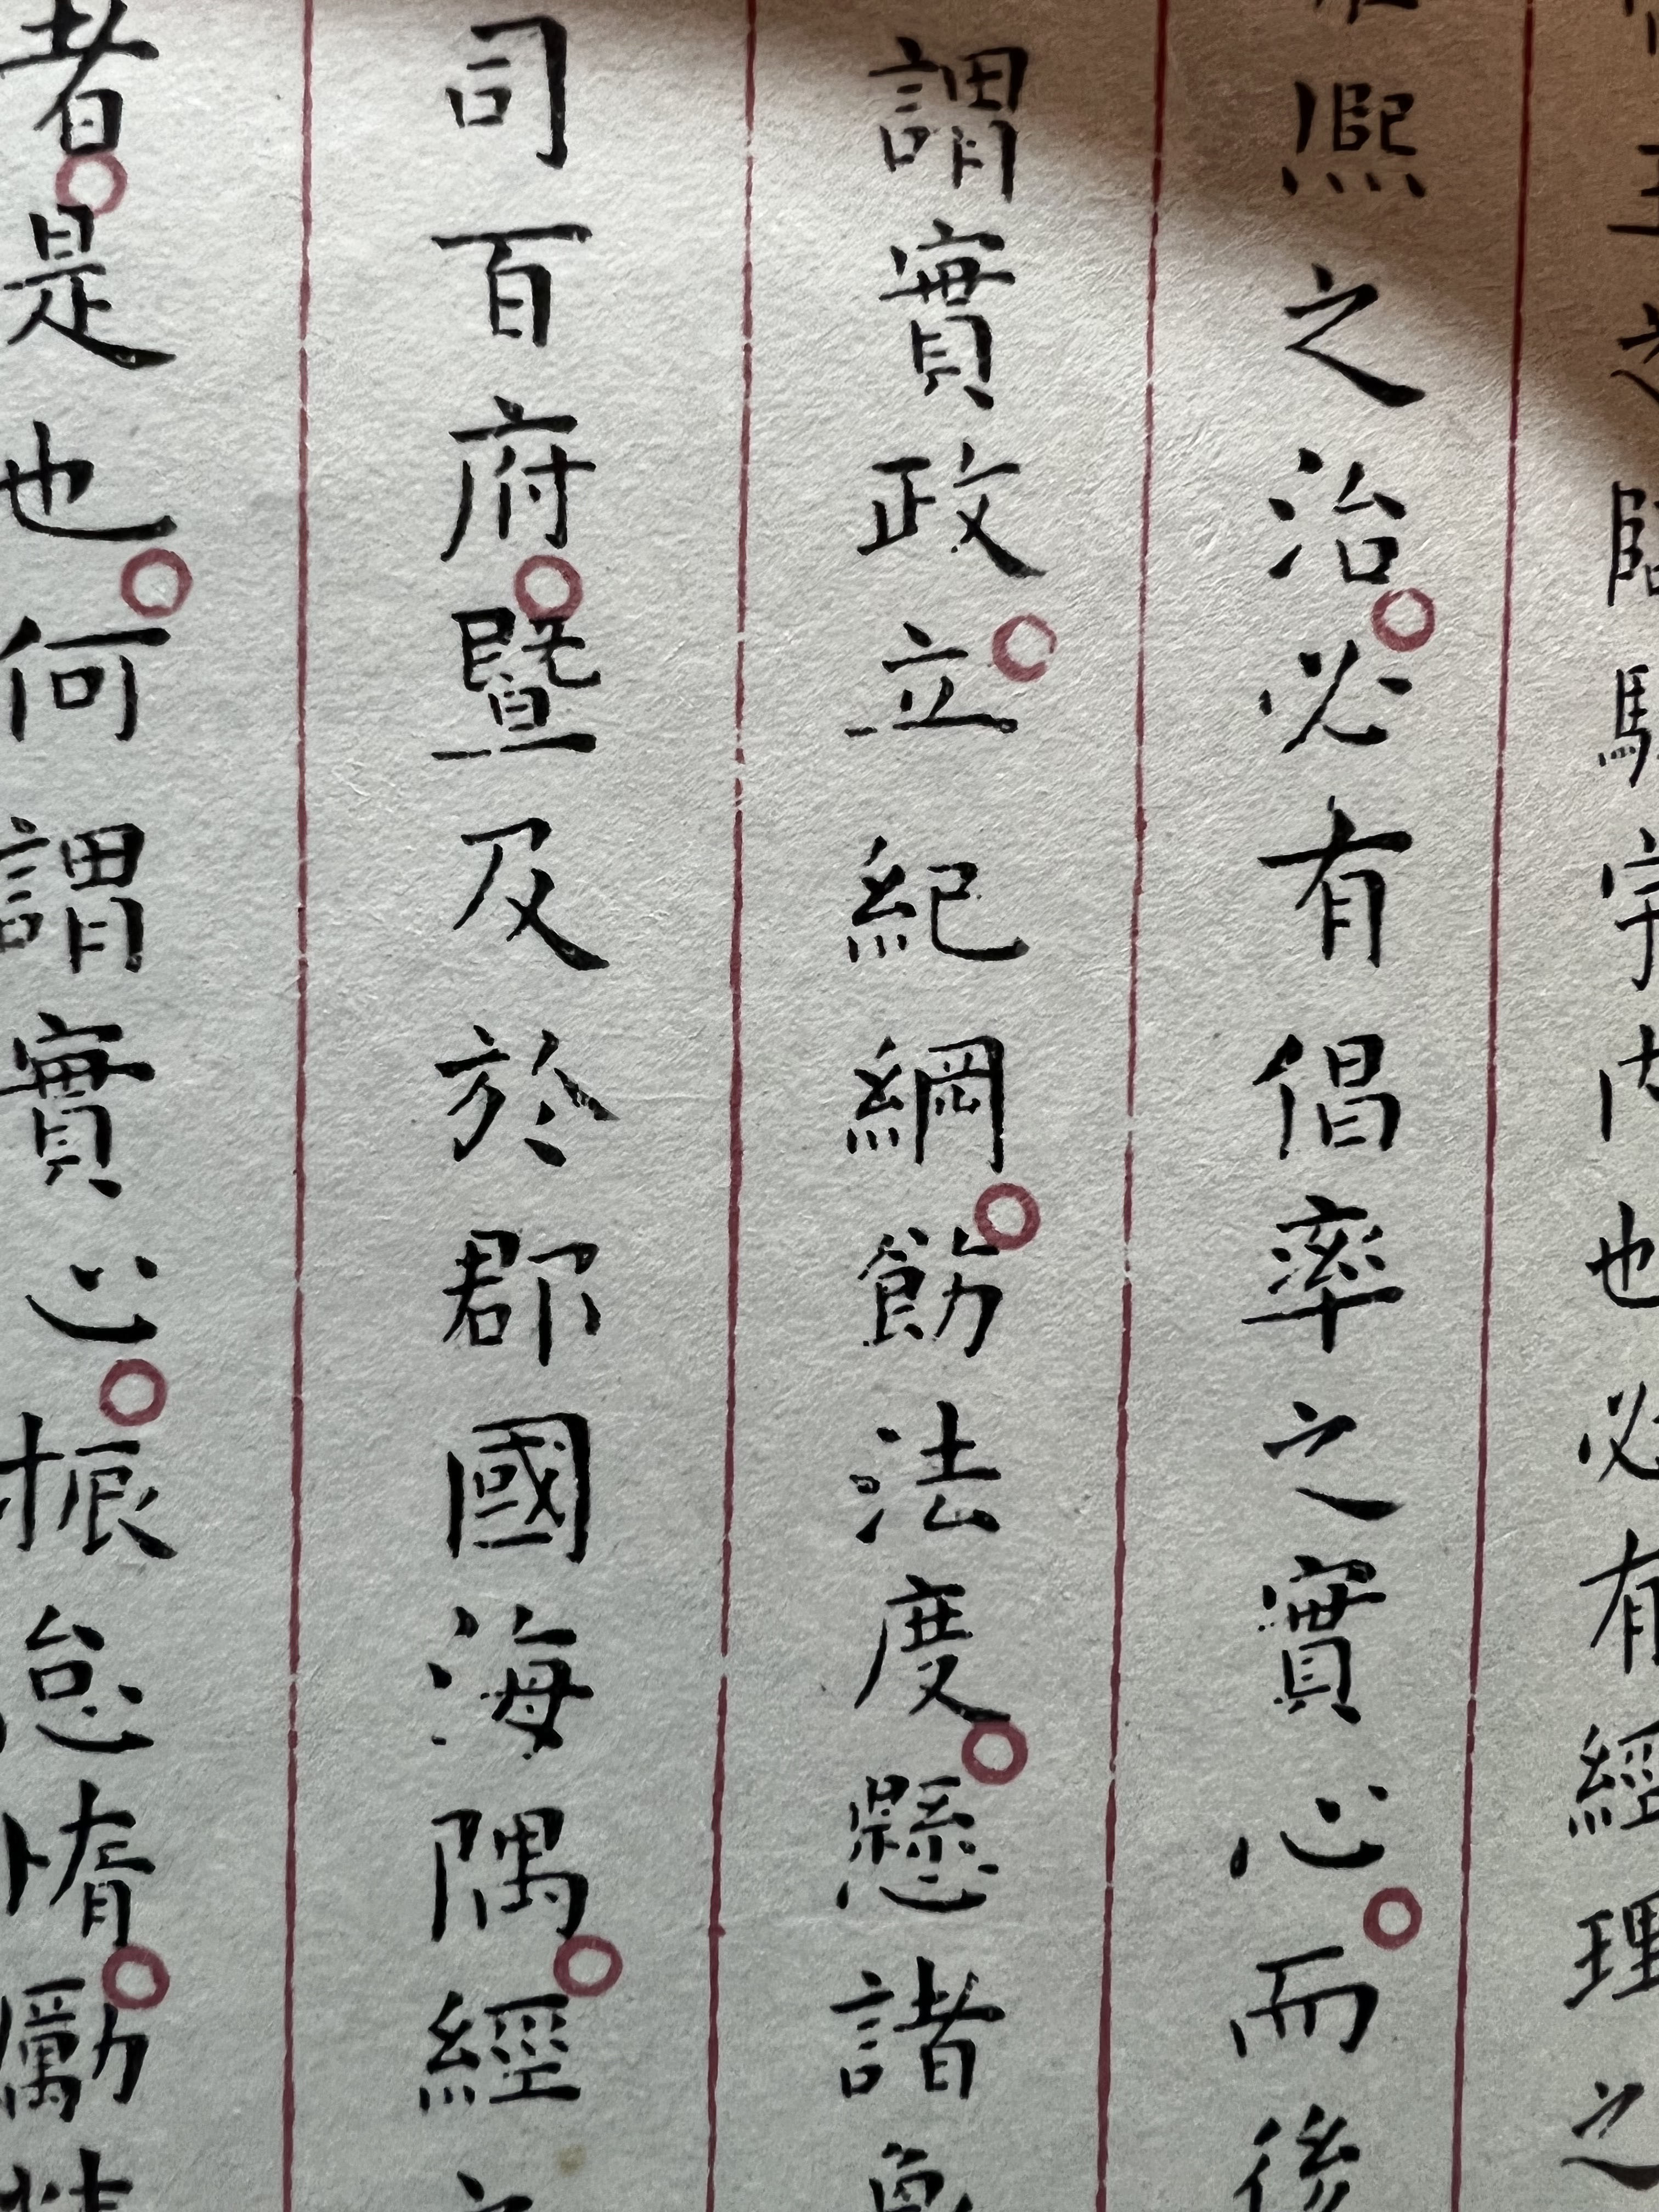 王之臨馭宇内也必有經理之
熙之治。必有倡率之實心。而後
謂實政。立紀綱。飭法度。懸諸
司百府。暨及於郡國海隅。經
者。是也。何謂實心。振怠惰。勵